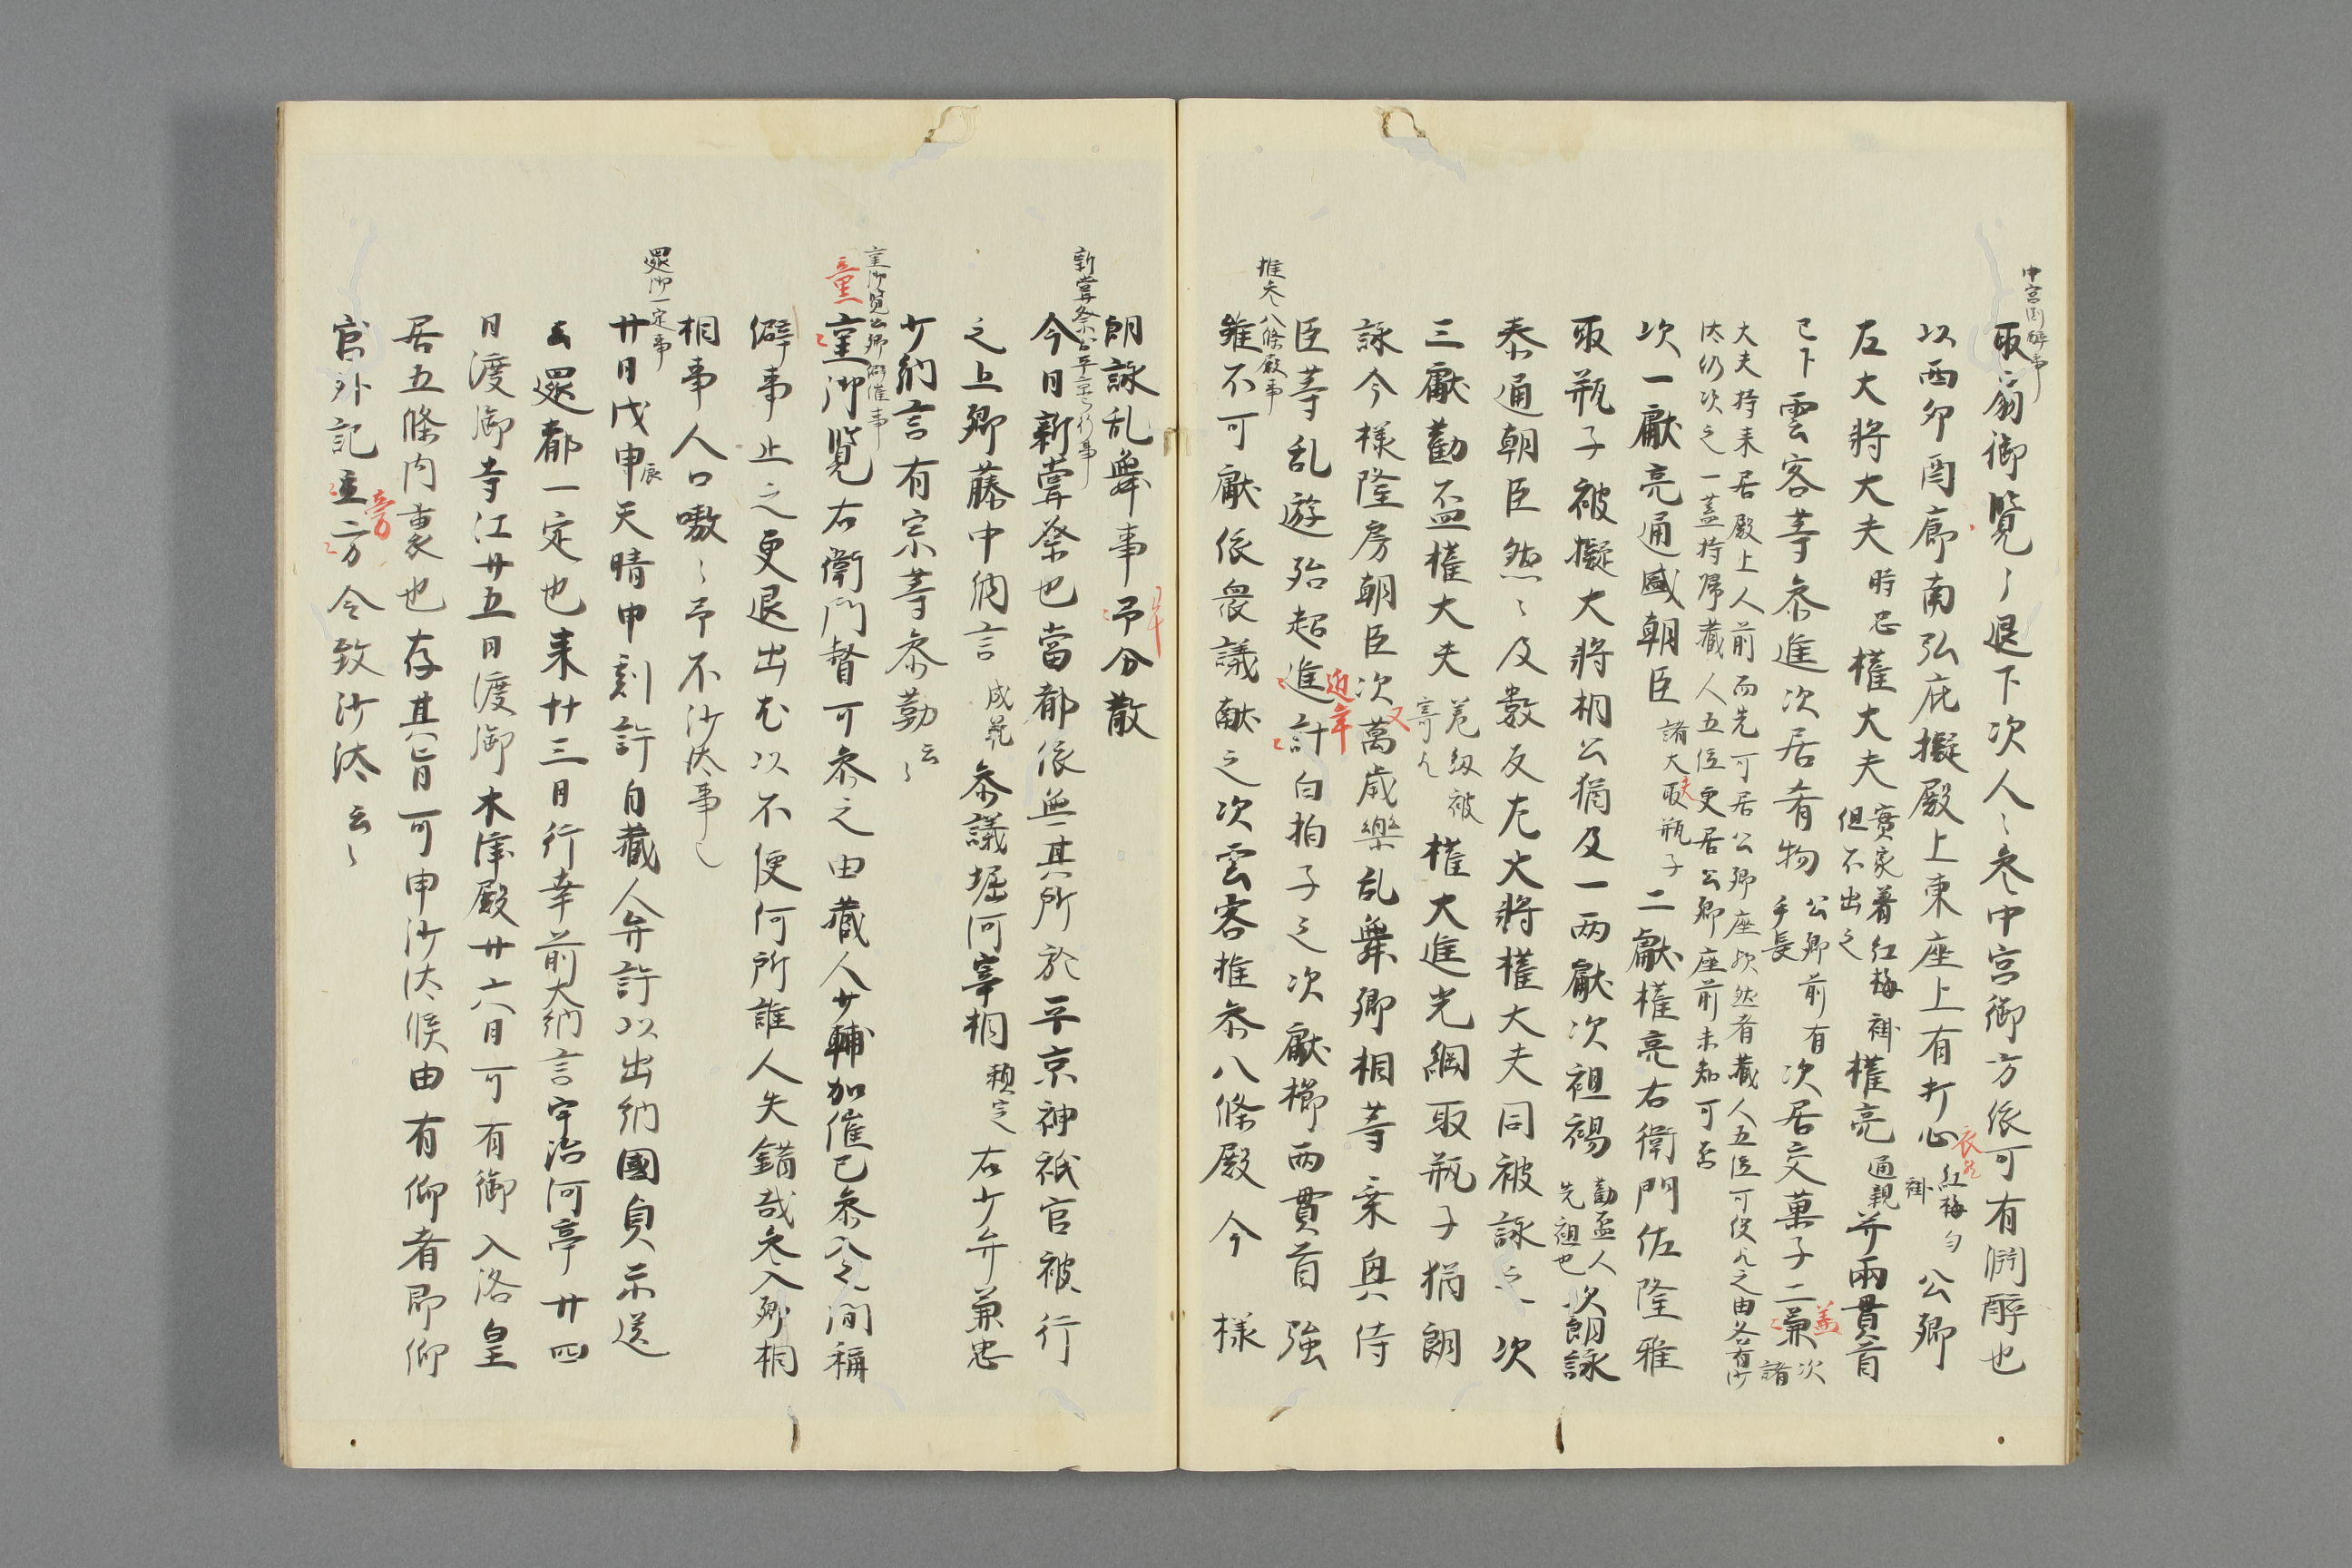 中宮淵醉事
取扇御覧〻退下次人〻参中宮御方依可有淵醉也
以西卯酉廊南弘庇擬殿上東座上有打心 紅梅匂 褂 公卿
衣欤
左大将大夫 時忠 権大夫 實家着紅梅褂 但不出之 権亮 通親 并兩貫首
已下雲客等参進次居肴物 公卿前有 手長 次居交菓子二兼 次 諸
盖
大夫持来居殿上人前而先可居公卿座欤然者蔵人五位可役之由各有沙
汰仍次之一盖持帰蔵人五位更居公卿座前未知可否
次一獻亮通盛朝臣 諸大取瓶子 二獻権亮右衛門佐隆雅
夫
取瓶子被擬大将相公猶及一両獻次袒裼 勸盃人 先袒也 次朗詠
泰通朝臣然〻及数反左大将権大夫同被詠之次
三獻勸盃権大夫 権大進光綱取瓶子猶朗
詠今様隆房朝臣次萬歳樂乱舞卿相等乗輿侍
又
臣等乱遊殆超進計白拍子之次獻櫛両貫首強
近年
推参八條殿事
雖不可獻依衆議献之次雲客推参八條殿今様
朗詠乱舞事予分散
新嘗祭於平京被行事
今日新嘗祭也當都依無其所於平京神祇官被行
之上卿藤中納言 成範 参議堀河宰相 頼定 右少弁兼忠
少納言有宗等参勤云〻
童御覧公卿御催事
童御覧右衛門督可参之由蔵人少輔加催已参入之間稱
童
僻事止之更退出尤以不便何所誰人失錯哉参入卿相
相事人口嗷〻予不沙汰事也
還御一定事
廿日戊申 辰 天晴申刻許自蔵人弁許以出納國貞示送
云還都一定也来廿三日行幸前大納言宇治河亭廿四
日渡御寺江廿五日渡御木津殿廿六日可有御入洛皇
居五條内裏也存其旨可申沙汰候由有仰者即仰
官外記並方令致沙汰云〻
旁